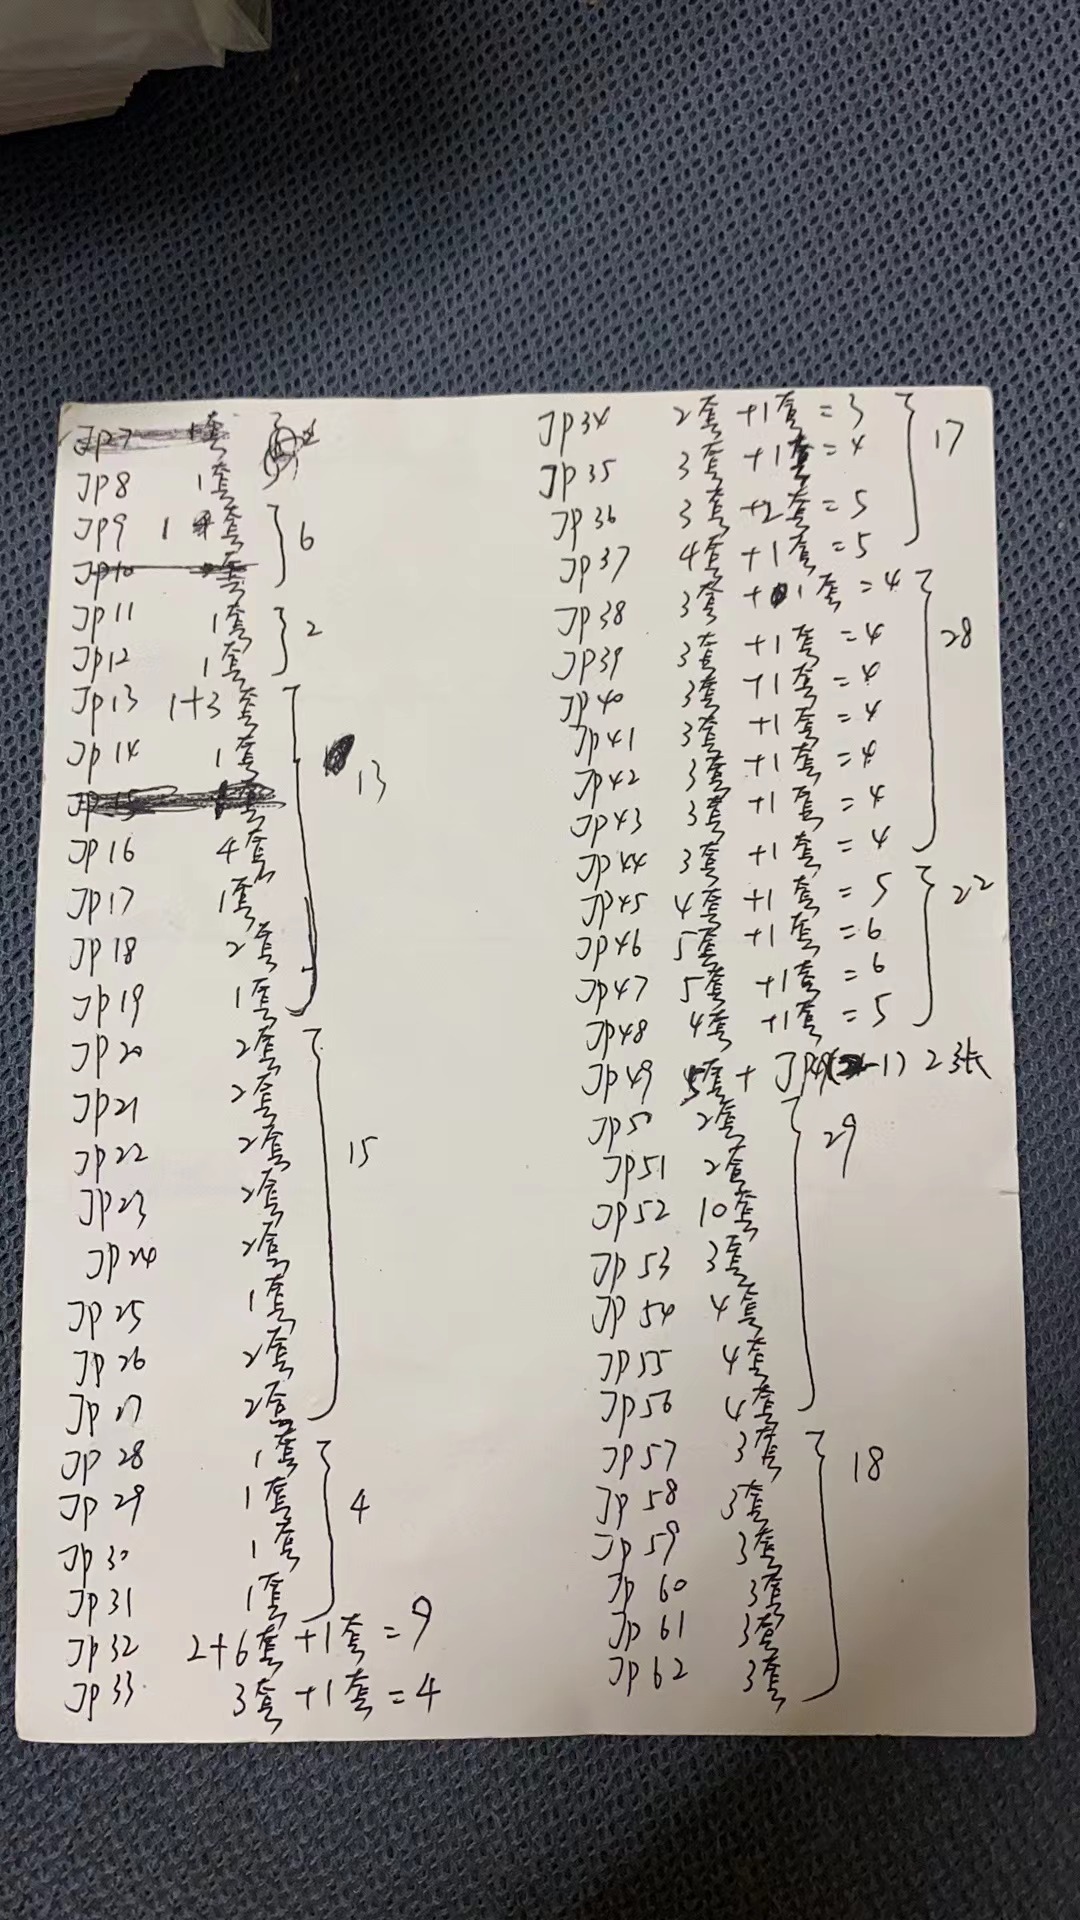 JP7 1套
JP8 1套
JP9 1 套
JP10 套
6
JP11 1套
JP12 1套
2
JP13 1+3套
JP14 1套
JP15 1套
JP16 4套
JP17 1套
JP18 2套
JP19 1套
13
JP20 2套
JP21 2套
JP22 2套
JP23 2套
JP24 2套
JP25 1套
JP26 2套
JP27 2套
15
JP28 1套
JP29 1套
JP30 1套
JP31 1套
4
JP32 2+6套+1套=9
JP33 3套+1套=4
JP34 2套+1套=3
JP35 3套+1套=4
JP36 3套+2套=5
JP37 4套+1套=5
17
JP38 3套+1套=4
JP39 3套+1套=4
JP40 3套+1套=4
JP41 3套+1套=4
JP42 3套+1套=4
JP43 3套+1套=4
JP44 3套+1套=4
28
JP45 4套+1套=5
JP46 5套+1套=6
JP47 5套+1套=6
JP48 4套+1套=5
22
JP49 5套+JP49(2-1) 23张
JP50 2套
JP51 2套
JP52 10套
JP53 3套
JP54 4套
JP55 4套
JP56 4套
29
JP57 3套
JP58 3套
JP59 3套
JP60 3套
JP61 3套
JP62 3套
18